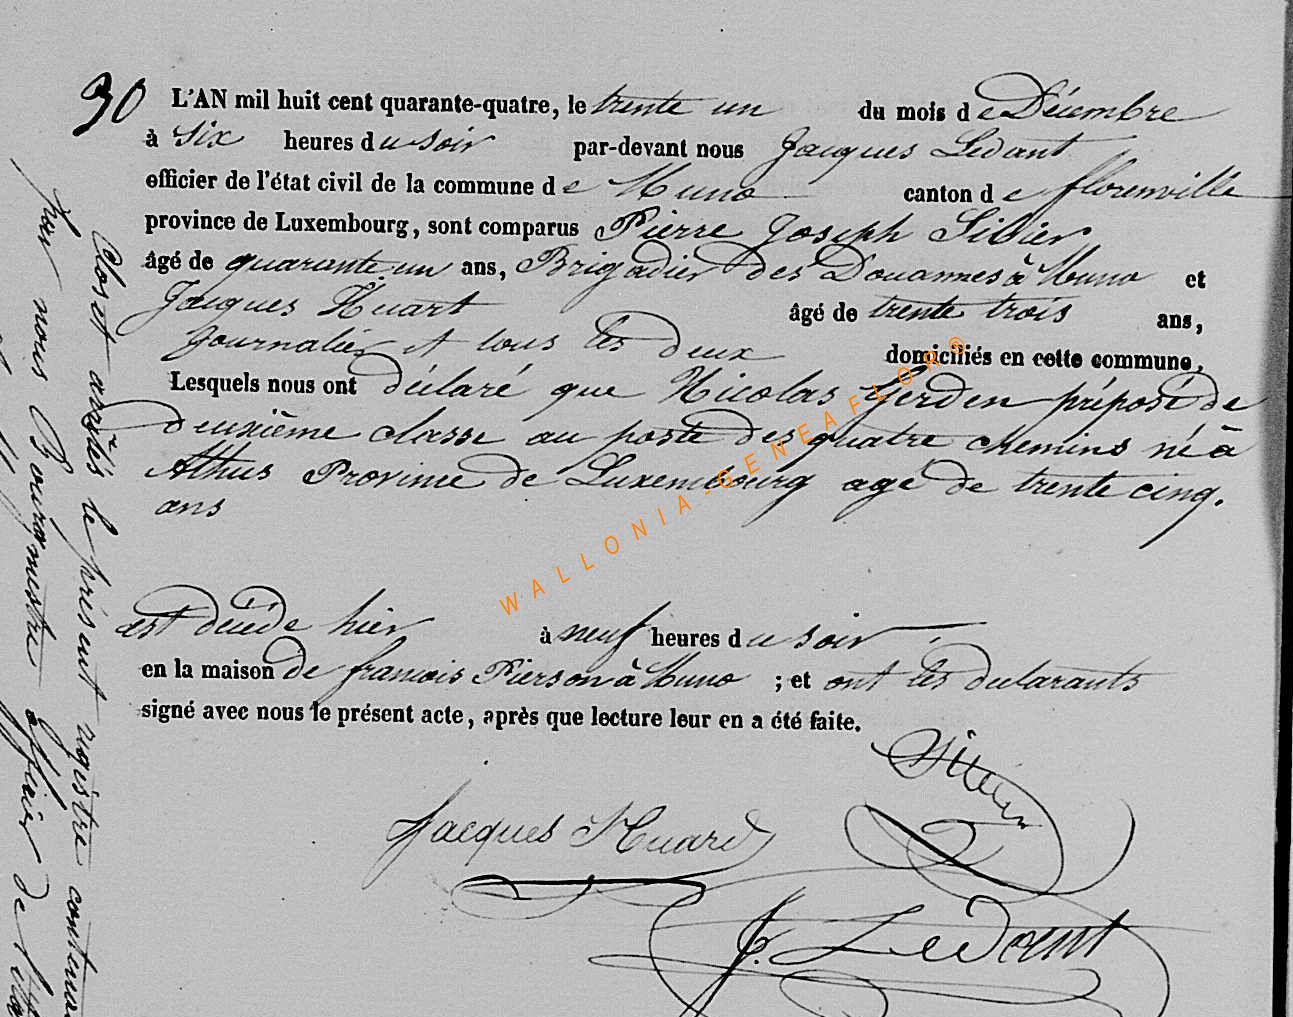 30
L'AN mil huit cent quarante-quatre, le trente un du mois de Décembre
à Six heures du Soir par-devant nous Jacques Ledant
officier de l'état civil de la commune de Muno canton de florenville
province de Luxembourg, sont comparus Pierre Joseph
âgé de quarante un ans, Brigadier des Douannes à Muno et
Jacques Huart âgé de trente trois ans,
Journalier et tous les deux domiciliés en cette commune,
Lesquels nous ont déclaré que Nicolas Gerden préposé de
deuxième classe au poste des quatre chemins né à
Athus Province de Luxembourg agé de trente cinq.
ans
est décédé hier à neuf heures du soir
en la maison de francois Pierson à Muno ; et ont les declarants
signé avec nous le présent acte, après que lecture leur en a été faite.
Jacques Huard
J. Ledant
Clos et arrêtés le présent registre contenant
par nous Bourgmestre officier de l'état
WALLONIA-GENEAFLOR®